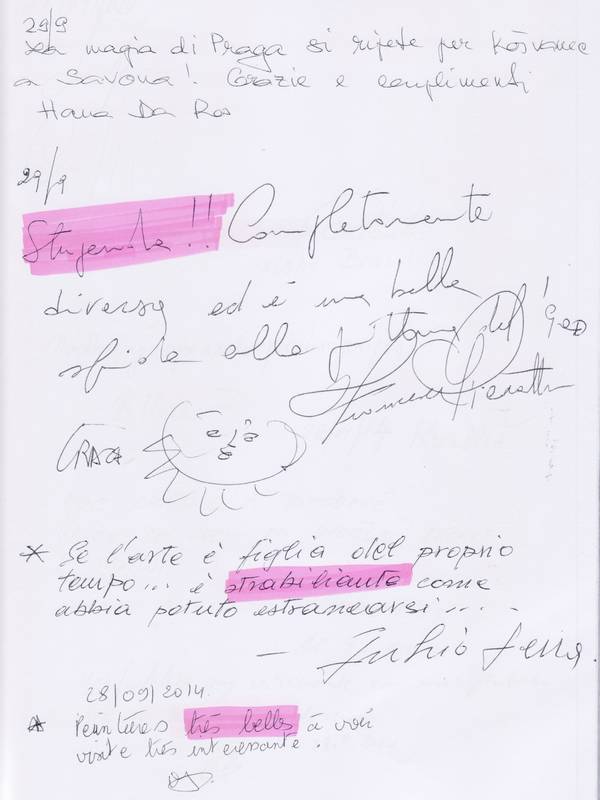 29/9
La magia di Praga si ripete per Košvanec
a Savona! Grazie e complimenti
Hana Da Ros
29/9
Stupenda!! Completamente
diversa ed è una bella
sfida alla pittura del
Se l'arte è figlia del proprio
tempo... è strabiliante come
abbia potuto estranearsi....
28/09/2014.
Peintures très belles à voir
visite très interessante.